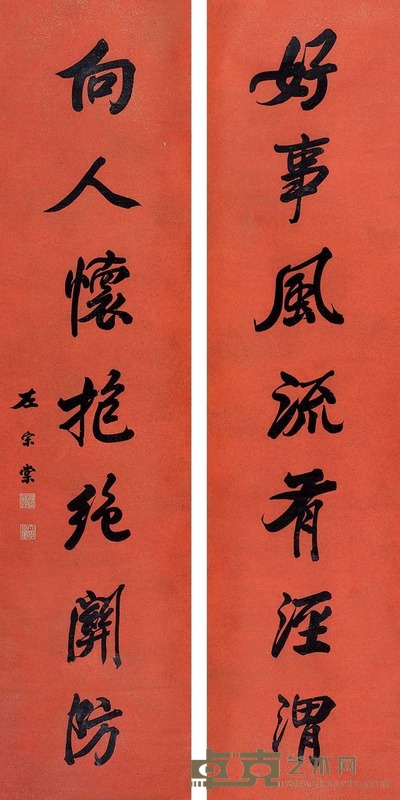 好事風流有涇渭
向人懷抱絶關防
左宗棠
卓克艺术网